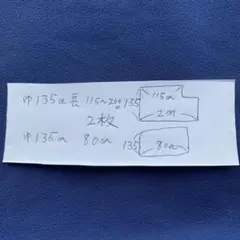 巾135㎝長115〜2m
135 115㎝
2m
2枚
巾135㎝ 80㎝ 135 80㎝